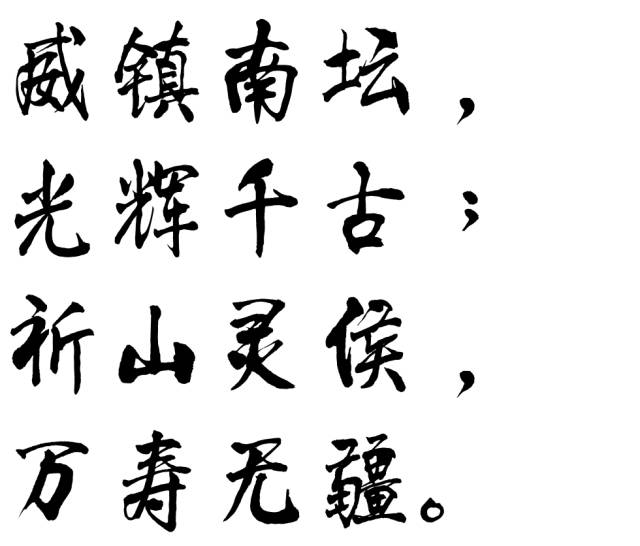 威镇南坛，
光辉千古；
祈山灵侯，
万寿无疆。